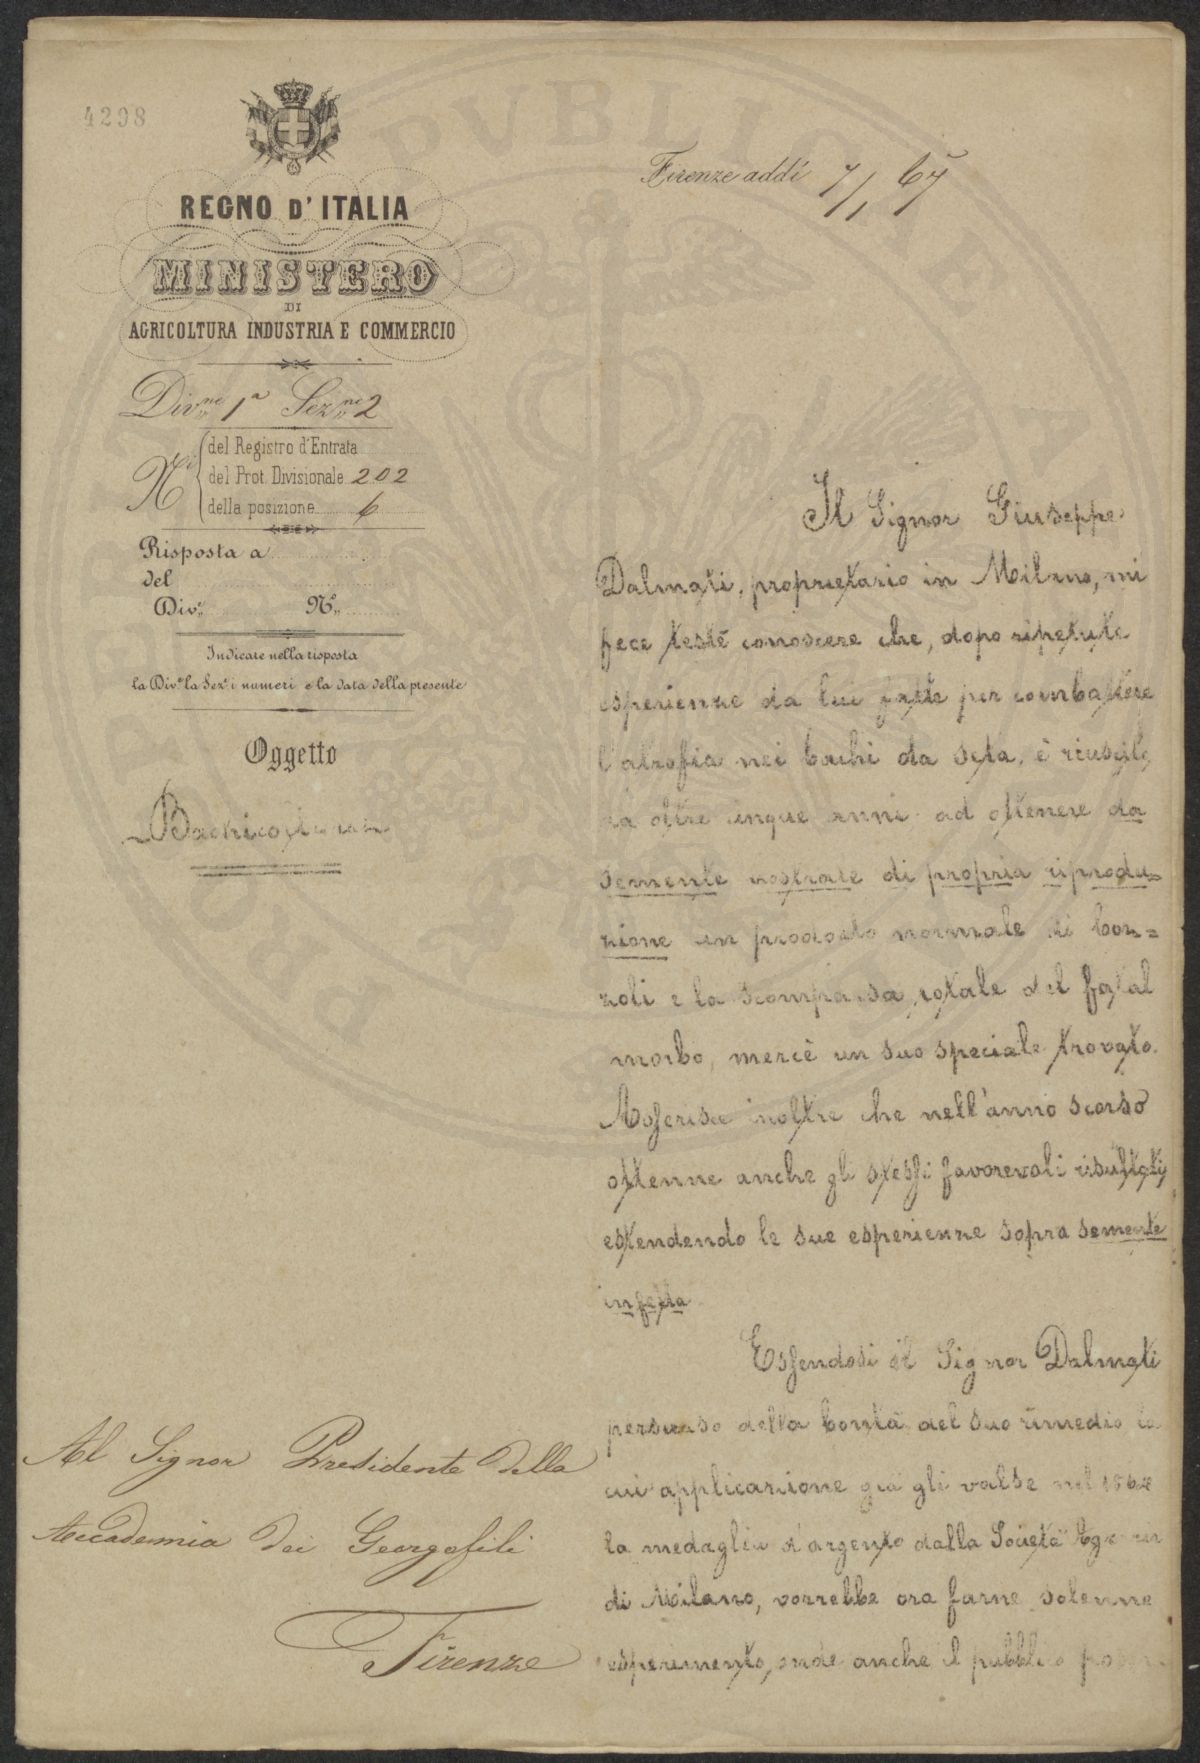 4298
REGNO D'ITALIA
MINISTERO
DI
AGRICOLTURA INDUSTRIA E COMMERCIO
Div.ne 1a Sez.ne 2
N.i
del Registro d'Entrata
del Prot. Divisionale 202
della posizione 6
Risposta a
del
Div.e N.o
Indicare nella risposta
la Div.e la Sez.e i numeri e la data della presente
Oggetto
Al Signor Presidente della
Accademia dei Georgofili
Firenze
Firenze addì 7/1 67
Il Signor Giuseppe
Dalmati, proprietario in Milano, mi
fece testè conoscere che, dopo ripetute
esperienze da lui fatte per combattere
l'atrofia nei bachi da seta, è riuscito
da oltre cinque anni ad ottenere da
semente nostrale di propria riprodu=
zione un prodotto normale di boz=
zoli e la scomparsa totale del fatal
morbo, mercè un suo speciale trovato.
Asserisce inoltre che nell'anno scorso
ottenne anche gli stessi favorevoli risultati
estendendo le sue esperienze sopra semente
infetta.
Essendosi il Signor Dalmati
persuaso della bontà del suo rimedio la
cui applicazione già gli valse nel
la medaglia d'argento dalla Società
di Milano, vorrebbe ora farne solenne
esperimento, onde anche il pubblico